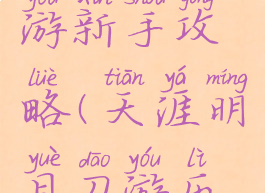 yóu xīn shǒu gōng
游新手攻
lüè tiān yá míng
略(天涯明
yuè dāo yóu lì
月刀游历